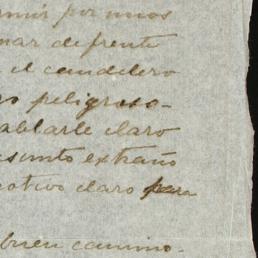 por unos
mar de frente
el candelero
peligroso-
hablarle claro
asunto extraño
motivo claro para
buen camino-